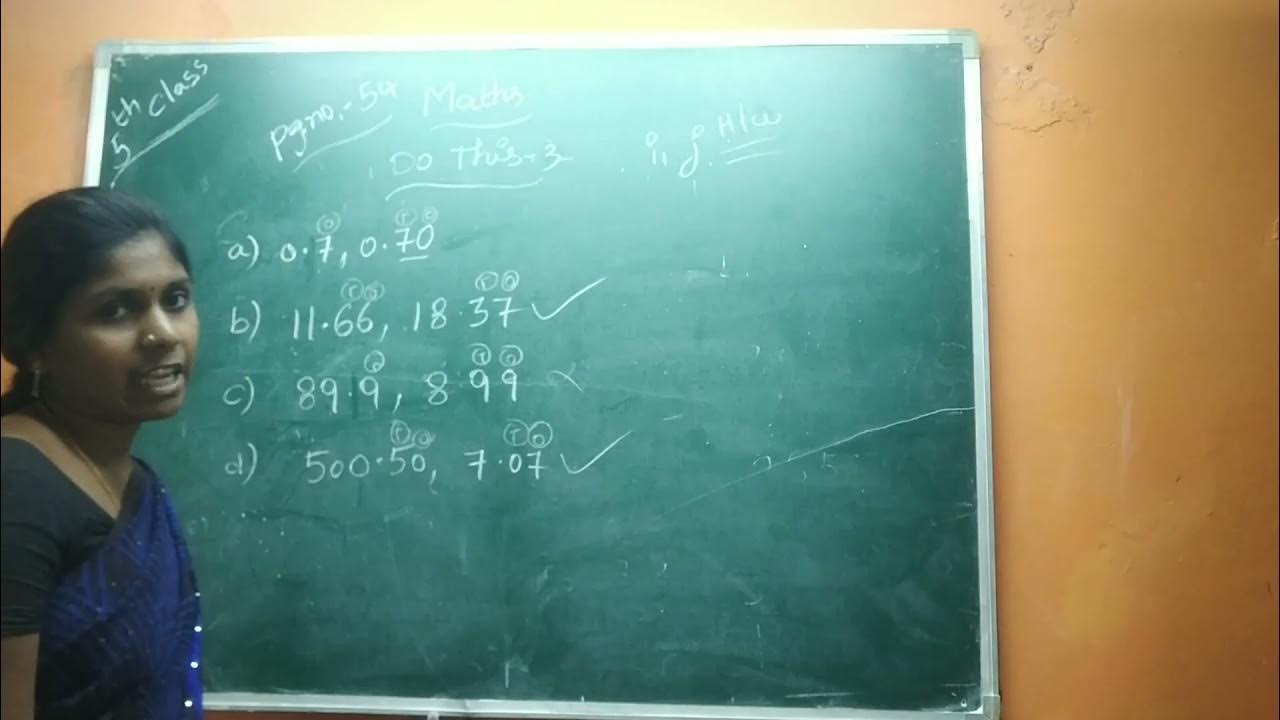 5th Class
Pg.no:- 54 Maths
Do This-3 i, j. H/w
a) 0.7, 0.70
b) 11.66, 18.37 ✓
c) 89.9, 8.99 ×
d) 500.50, 7.07 ✓